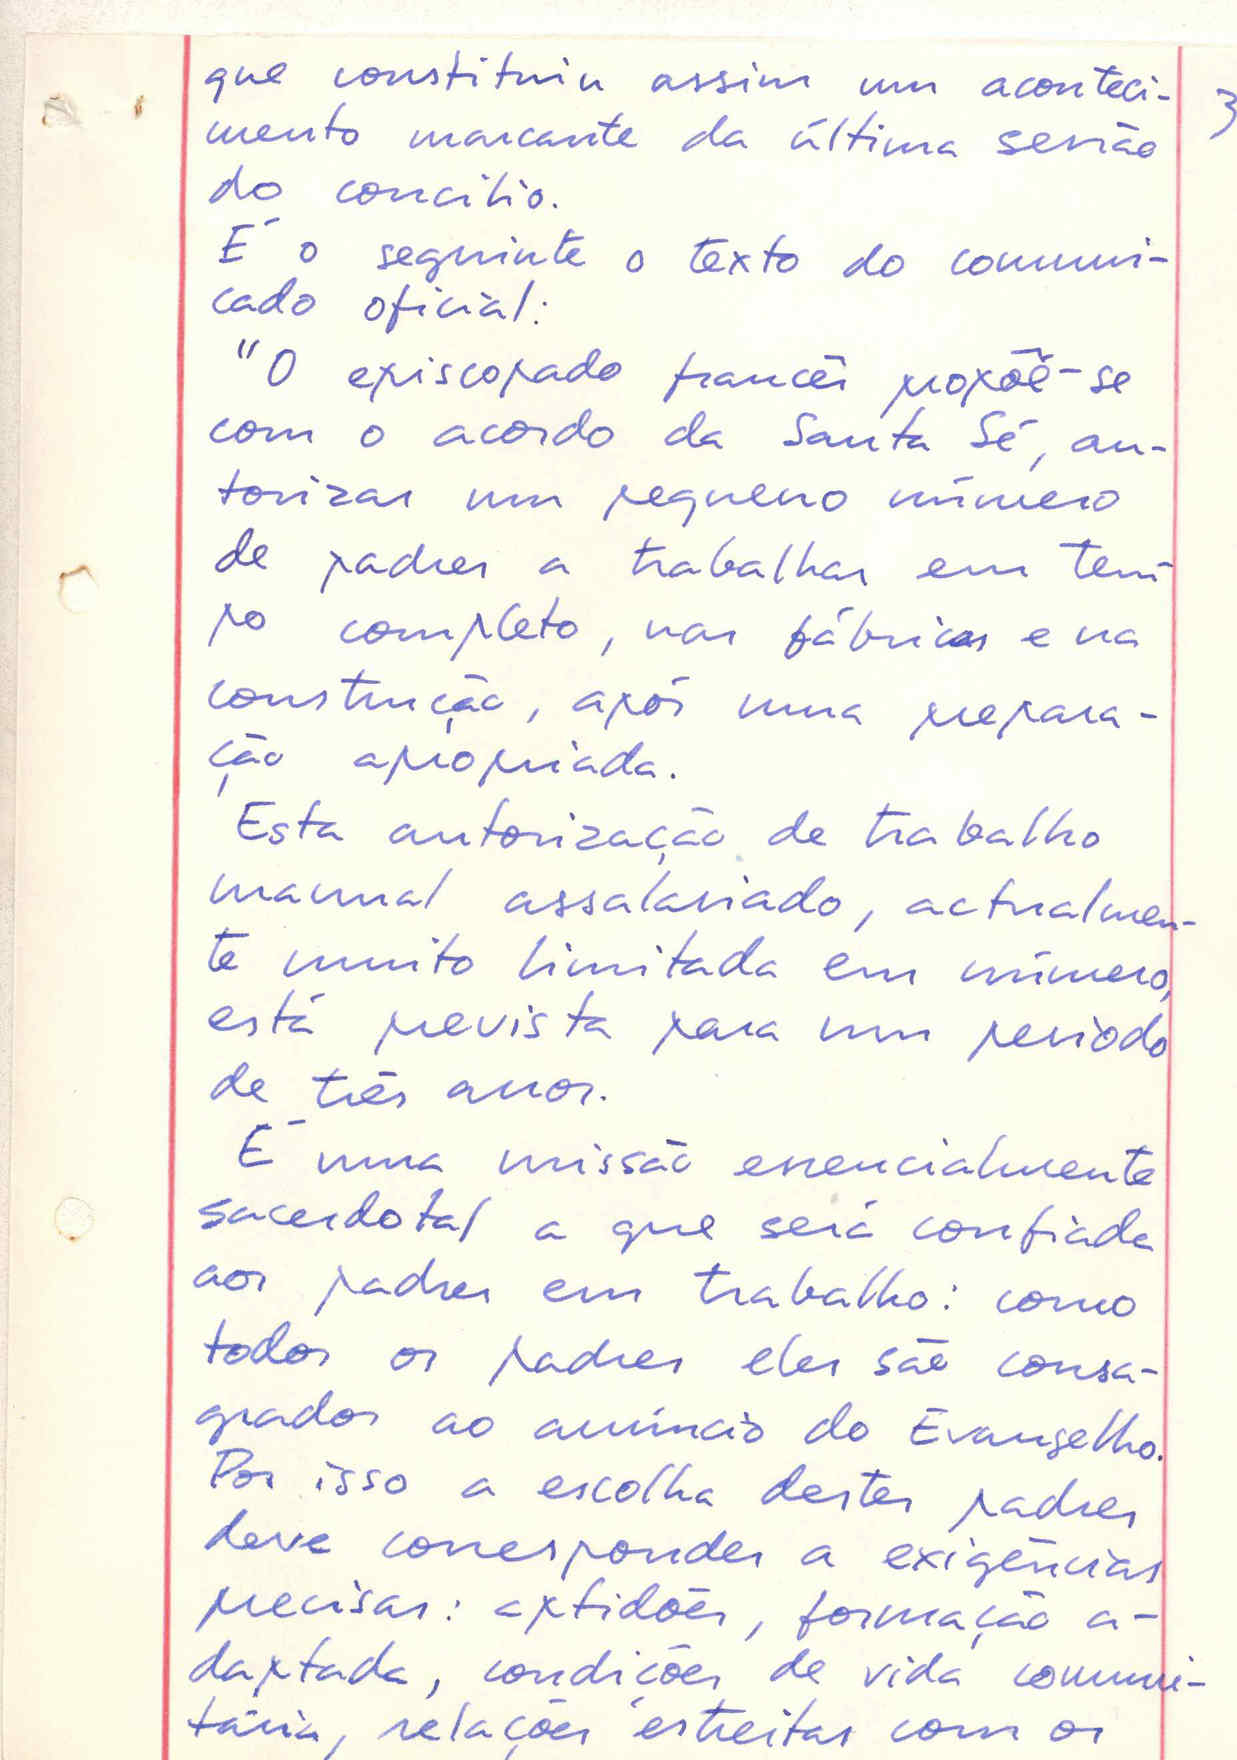 que constituiu assim um aconteci- 3
mento marcante da última sessão
do concílio.
É o seguinte o texto do comuni-
cado oficial:
"O episcopado francês propõe-se
com o acordo da Santa Sé, au-
torizar um pequeno número
de padres a trabalhar em tem-
po completo, nas fábricas e na
construção, após uma prepara-
ção apropriada.
Esta autorização de trabalho
manual assalariado, actualmen-
te muito limitada em número,
está prevista para um período
de três anos.
É uma missão essencialmente
sacerdotal a que será confiada
aos padres em trabalho: como
todos os padres eles são consa-
grados ao anúncio do Evangelho.
Por isso a escolha destes padres
deve corresponder a exigências
precisas: aptidões, formação a-
daptada, condições de vida comuni-
tária, relações estreitas com os